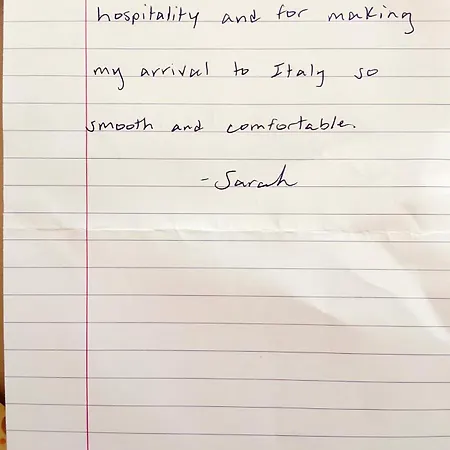 hospitality and for making
my arrival to Italy so
smooth and comfortable.
-Sarah